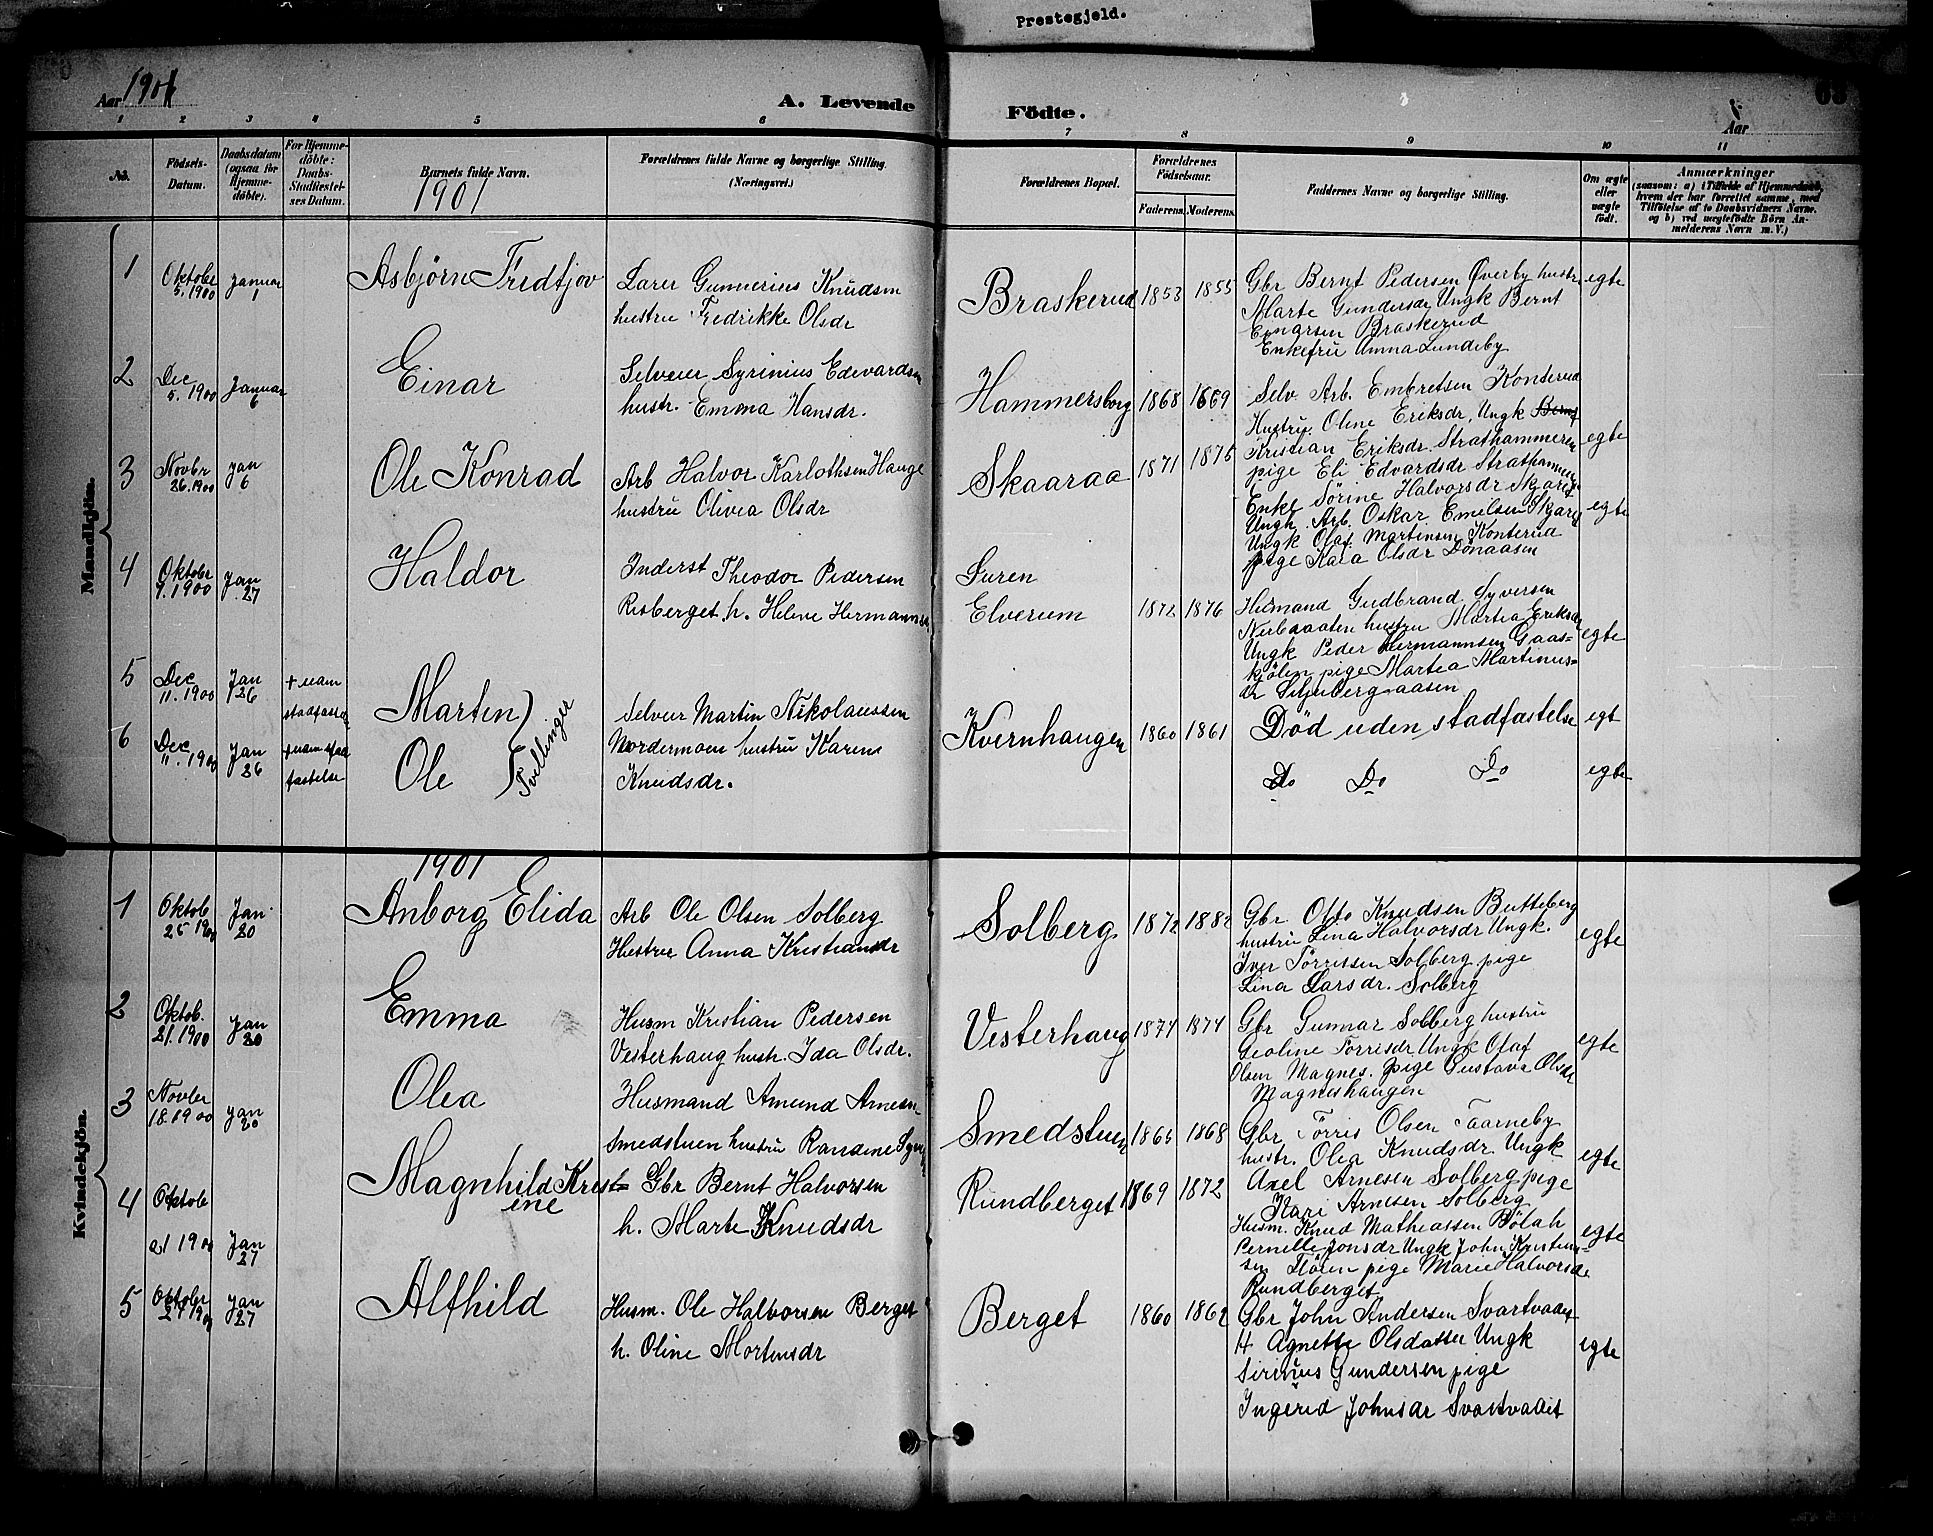 Prestegjeld.
Aar 1901
A. Levende Födte.
Aar
63
1 2 3 4 5 6 7 8 9 10 11
No.
Födsels-Datum.
Daabsdatum (ogsaa for Hjemme-döbte).
For Hjemme-döbte: Daabs-Stadfæstel-ses Datum.
Barnets fulde Navn.
1901
Forældrenes fulde Navne og borgerlige Stilling. (Næringsvei.)
Forældrenes Bopæl.
Forældrenes Födselsaar.
Faderens. Moderens.
Faddernes Navne og borgerlige Stilling.
Om ægte eller uægte født.
Anmærkninger
(saasom: a) i Tilfælde af Hjemmedaab, hvem der har forrettet samme, med Tilföielse af to Daabsvidners Navne, og b) ved uægtefödte Börn An-melderens Navn m. V.)
Mandkjön.
1
Oktober 5. 1900
Januar 1
Asbjörn Fredtjov
Larer Gunnerius Knudsen
hustru Fredrikke Olsdr
Braskerud
1853 1855
Gbr Bernt Pedersen Överby hustr
Marte Gundersdr Ungk Bernt
Einarsen Braskerud
Enkefru Anna Lundeby
egte
2
Dec 5. 1900
Januar 6
Einar
Selveier Syrinius Edevardsen
hustr. Emma Hansdr.
Hammersborg
1868 1869
Selv. Arb. Embretsen Konterud
Hustru Oline Eriksdr, Ungk Bernt
Kristian Eriksdr. Strathammeren
pige Eli Edvardsdr Strathammeren
egte
3
Novbr 26. 1900
Jan 6
Ole Konrad
Arb Halvor Karlothsen Hauge
hustru Olivia Olsdr
Skaaraa
1871 1875
Enke Sörine Halvorsdr
Ungk. Arb. Oskar Emilsen
Ungk Olaf Martinsen Konterud
pige Kaia Olsdr Dönaasen
egte
4
Oktober 7. 1900
Jan 27
Haldor
Inderst Theodor Pedersen
Risberget h. Helene Hermanns
Luren
Elverum
1872 1876
Husmand Gudbrand Syversen
hustru Martea Eriksdr
Ungk Peder Hermannsen Gaas=
kjölen pige Martea Martinus=
dr
egte
5
Dec 11. 1900
Jan 26
+ uam stadfastelse
Marten
Tvillinger
Selveier Martin Nikolaussen
Nordermoen hustru Karen
Knudsdr.
Kvernhaugen
1860 1861
Död uden stadfastelse
egt
6
Dec 11. 1900
Jan 26
+ uam stad fastelse
Ole
Do Do Do
egte
Kvindekjön.
1901
1
Oktob 25 1900
Jan 20
Anborg Elida
Arb Ole Olsen Solberg
Hustru Anna Kristiansdr
Solberg
1872 1882
Gbr Otto Knudsen Butteberg
hustru Lina Halvorsdr Ungk.
Iver Törrissen Solberg pige
Lina Larsdr. Solberg
egte
2
Oktob. 21. 1900
Jan 20
Emma
Husm Kristian Pedersen
Vesterhaug hustr. Ida Olsdr.
Vesterhaug
1874 1874
Gbr Gunnar Solberg hustru
Georline Torrisdr Ungk Olaf
Olsen Magnes. pige Gustava Olsdr
Magneshaugen
egte
3
Novber 18. 1900
Jan 20
Olea
Husmand Amund Arnesen
Smedstuen hustru Randine
Smedstuen
1865 1868
Gbr Törris Olsen Taarneby
hustr. Olea Knudsdr. Ungk
Axel Arnesen Solberg pige
Kari Arnesen Solberg
egte
4
Oktob 21 1900
Jan 27
Magnhild Krist=
ine
Gbr Bernt Halvorsen
h. Marte Knudsdr
Rundberget
1869 1872
Husm. Knud Mathiassen Bölah
Pernille Jonsdr Ungk John Kristian=
sen Flören pige Marie Halvorsdr
Rundberget
egte
5
Oktober 27 1900
Jan 27
Alfhild
Husm. Ole Halvorsen Berget
h. Oline Mortensdr
Berget
1860 1862
Gbr John Andersen Svartvadet
H Agnette Olsdatter Ungk
Sirenius Gundersen pige
Ingerid Johnsdr Svartvadet
egte